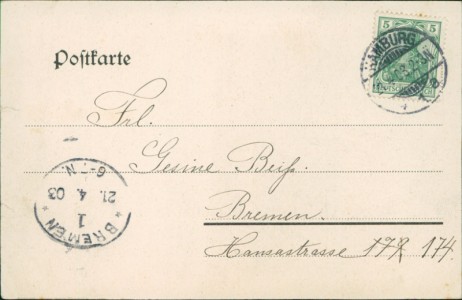 5 5
HAMBURG
Postkarte
Frl.
Gesine Beiß.
6-7 N.
21. 4. 03
1
* BREMEN *
Bremen.
Hansastrasse 172 174.